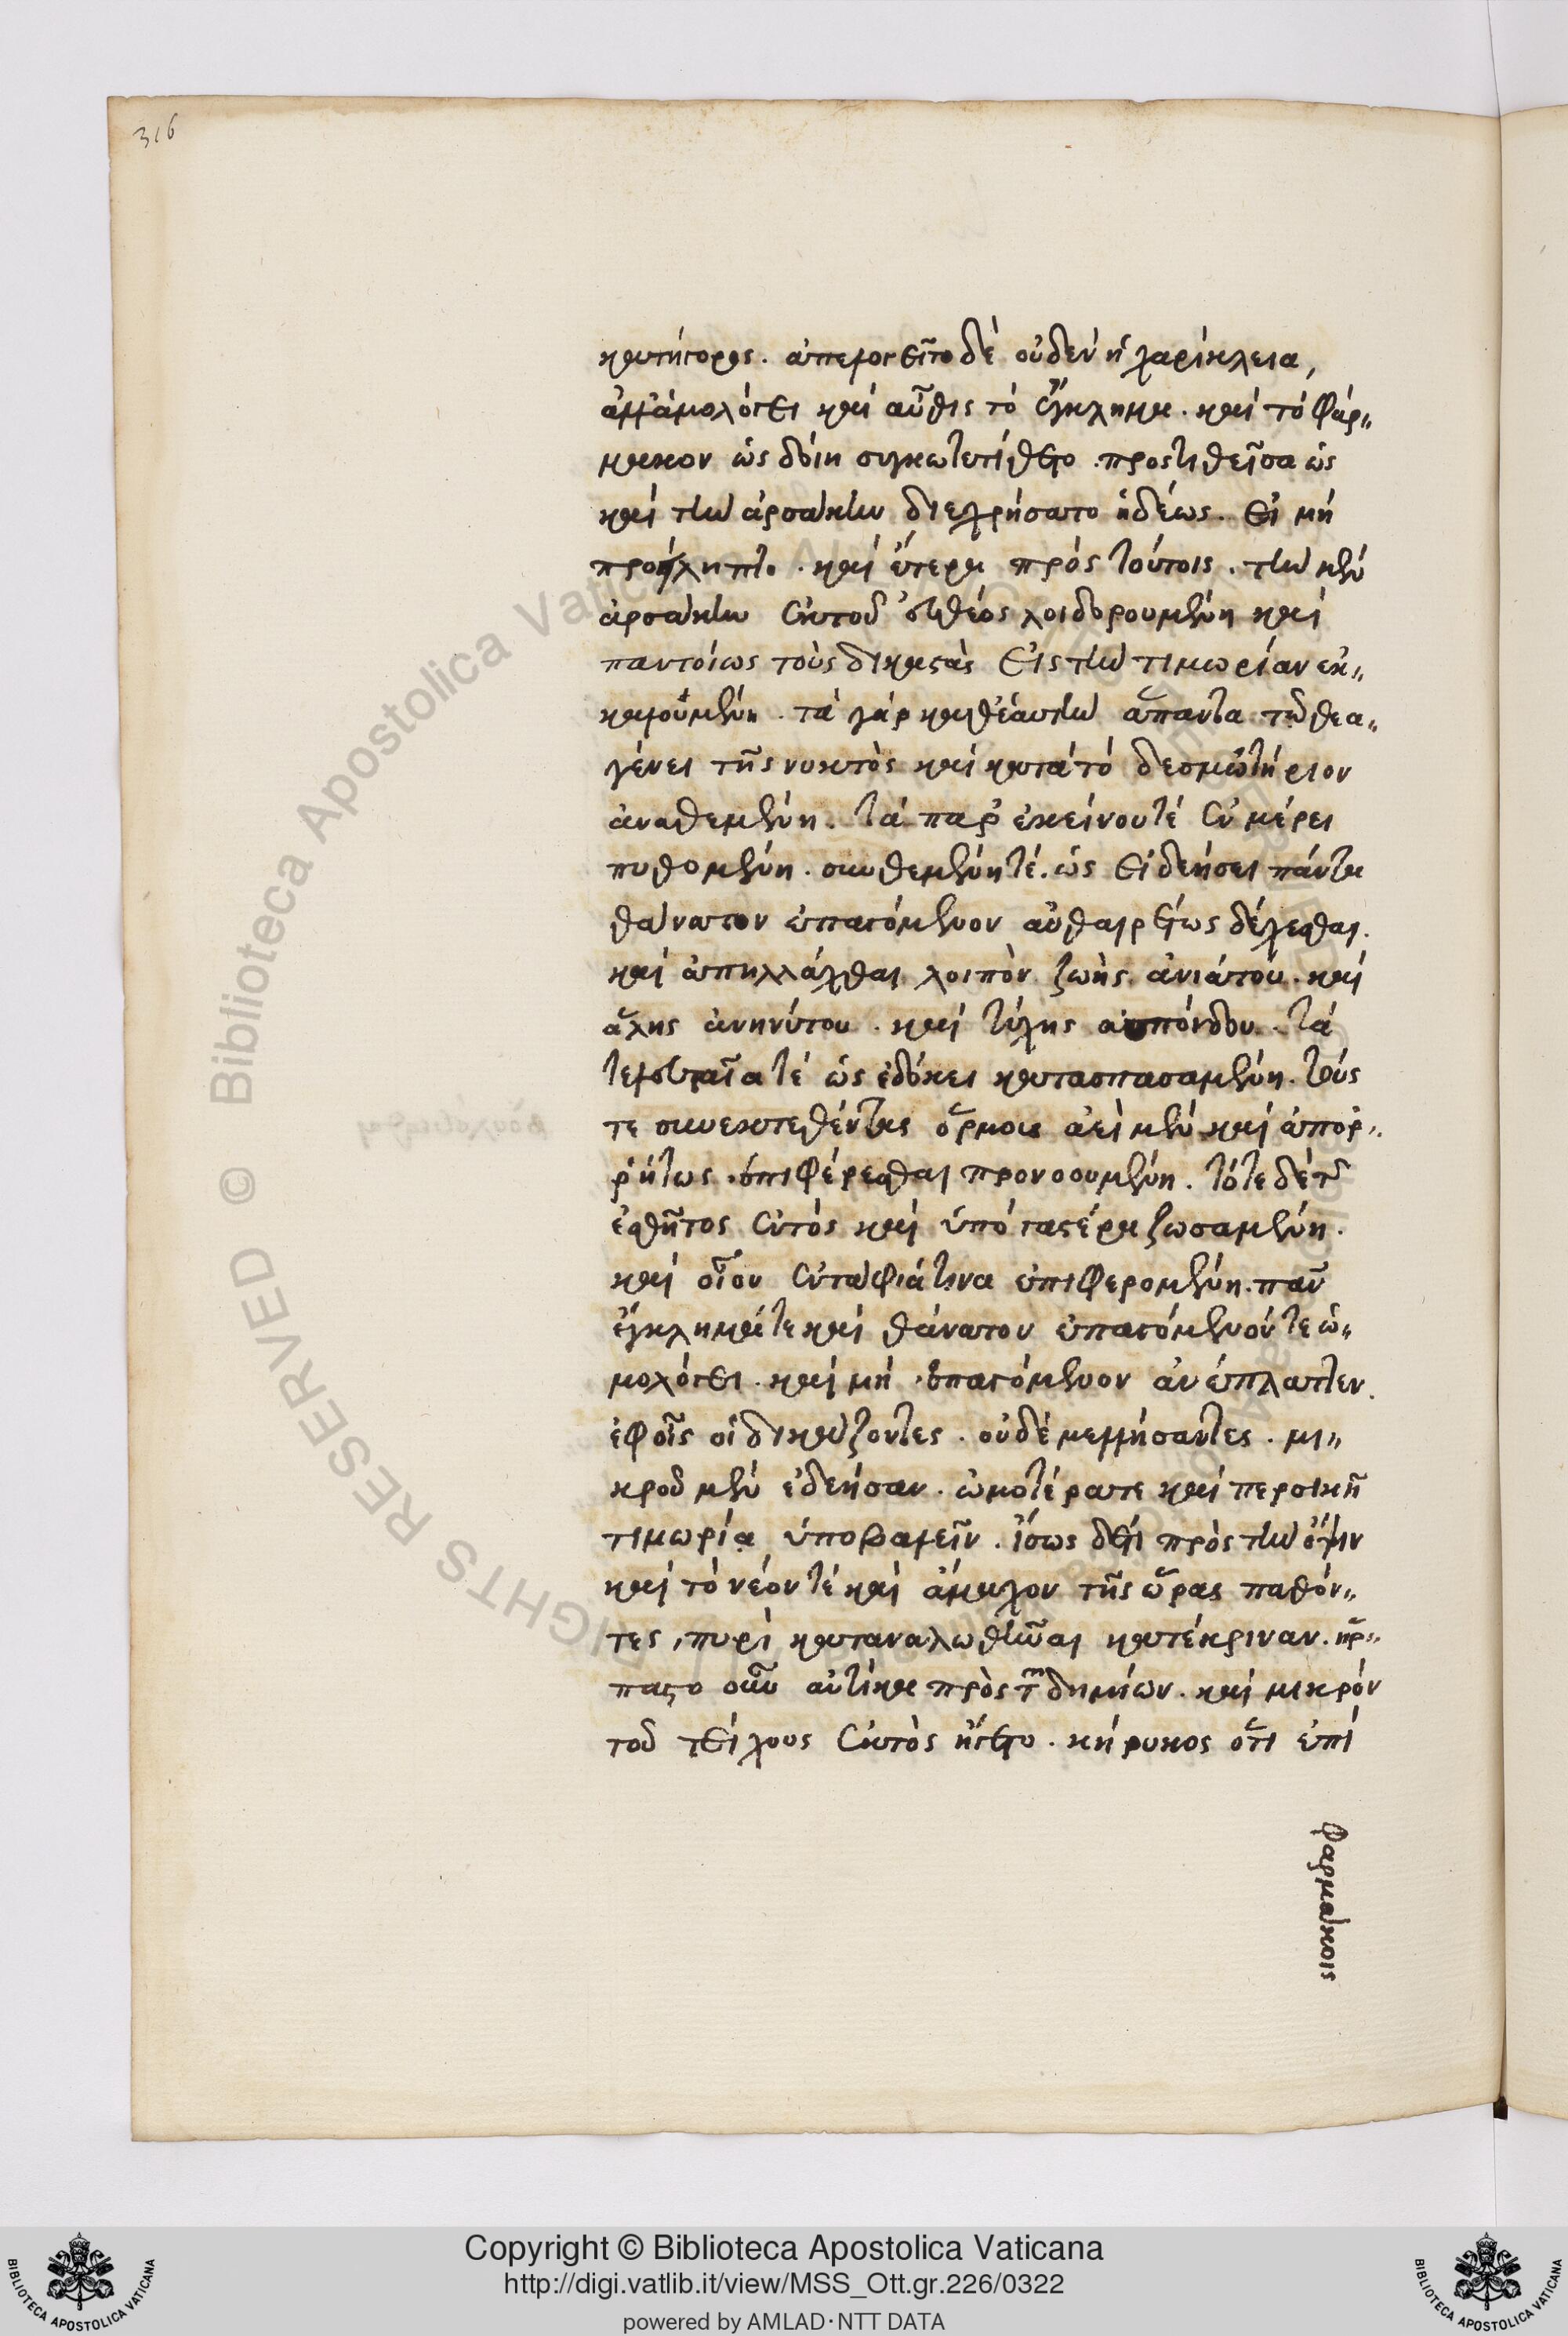 316
κατήγορος. ἀπελογεῖτο δὲ οὐδὲν ἡ χαρίκλεια,
ἀλλ' ὡμολόγει καὶ αὖθις τὸ ἔγκλημα. καὶ τὸ φάρ„
μακον ὡς δοίη συγκατετίθετο. προστιθεῖσα ὡς
καὶ τὴν ἀρσάκην διεχρήσατο ἡδέως. εἰ μὴ
προείληπτο. καὶ ἕτερα πρὸς τούτοις. τὴν μὲν
ἀρσάκην ἐκ τοῦ εὐθέος λοιδορουμένη καὶ
παντοίως τοὺς δικαστὰς εἰς τὴν τιμωρίαν ἐκ„
καλουμένη. τὰ γὰρ καθ' ἑαυτὴν ἅπαντα τῷ θεα„
γένει τῆς νυκτὸς καὶ κατὰ τὸ δεσμωτήριον
ἀναθεμένη. τὰ παρ' ἐκείνου τὲ ἐν μέρει
πυθομένη. συνθεμένη τὲ. ὡς εἰ δεήσει πάντα
θάνατον ἐπαγόμενον αὐθαιρέτως δέχεσθαι.
καὶ ἀπηλλάχθαι λοιπὸν ζωῆς ἀνιάτου. καὶ
ἄλης ἀνηνύτου. καὶ τύχης ἀσπόνδου. τὰ
τελευταῖα τὲ ὡς ἐδόκει κατασπασαμένη. τούς
τε συνεκτεθέντας ὅρμους ἀεὶ μὲν καὶ ἀπορ„
ρήτως ἐπιφέρεσθαι προνοουμένη. τότε δὲ τῆς
ἐσθῆτος ἐντὸς καὶ ὑπὸ γαστέρα ζωσαμένη.
καὶ οἷον ἐντάφιά τινα ἐπιφερομένη. πᾶν
ἔγκλημά τε καὶ θάνατον ἐπαγόμενόν τε ὡ„
μολόγει. καὶ μὴ ἐπαγόμενον ἀνέπλαττεν.
ἐφ' οἷς οἱ δικάζοντες. οὐδὲ μελλήσαντες. μι„
κροῦ μὲν ἐδέησαν. ὠμοτέρα τε καὶ περσικῇ
τιμωρία ὑποβαλεῖν. ἴσως δέ τι πρὸς τὴν ὄψιν
καὶ τὸ νέον τὲ καὶ ἄμαχον τῆς ὥρας παθόν„
τες, πυρὶ καταναλωθῆναι κατέκριναν. ἥρ„
παστο οὖν αὐτίκα πρὸς τῶν δημίων. καὶ μικρὸν
τοῦ τείχους ἐκτὸς ἤγετο. κήρυκος ὅτι ἐπὶ
φαρμάκοις
Copyright © Biblioteca Apostolica Vaticana
http://digi.vatlib.it/view/MSS_Ott.gr.226/0322
powered by AMLAD·NTT DATA
BIBLIOTECA APOSTOLICA VATICANA
BIBLIOTECA APOSTOLICA VATICANA